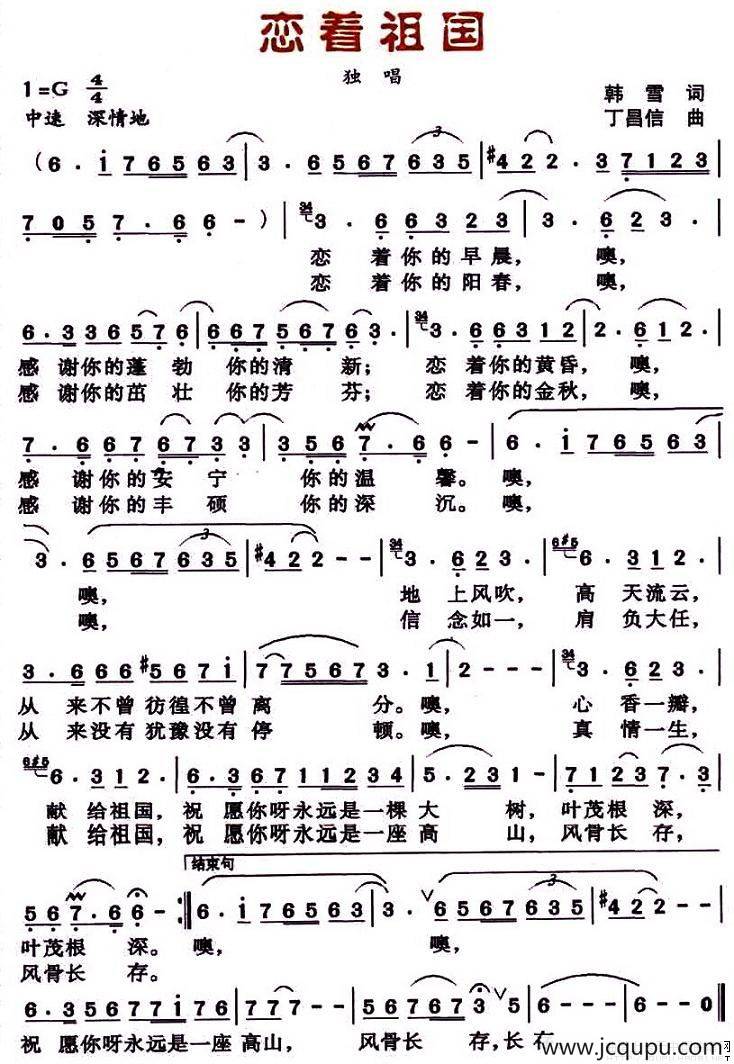 恋着祖国
独 唱
1=G 4/4
韩 雪 词
中速 深情地
丁昌信 曲
(6 . i 7 6 5 6 3 | 3 . 6 5 6 7 6 3 5 | #4 2 2 . 3 7 1 2 3 |
7 0 5 7 . 6 6 - ) | 3 . 6 6 3 2 3 | 3 . 6 2 3 . |
恋 着你的早晨, 噢,
恋 着你的阳春, 噢,
6 . 3 3 6 5 7 6 | 6 6 7 5 6 7 6 3 . | 3 . 6 6 3 1 2 | 2 . 6 1 2 . |
感 谢你的蓬 勃 你的清 新; 恋 着你的黄昏, 噢,
感 谢你的茁 壮 你的芳 芬; 恋 着你的金秋, 噢,
7 . 6 6 7 6 7 3 3 | 3 5 6 7 . 6 6 - | 6 . i 7 6 5 6 3 |
感 谢你的安 宁 你的温 馨。噢,
感 谢你的丰 硕 你的深 沉。噢,
3 . 6 5 6 7 6 3 5 | #4 2 2 - - | 3 . 6 2 3 . | 6 . 3 1 2 . |
噢, 地 上风吹, 高 天流云,
噢, 信 念如一, 肩 负大任,
3 . 6 6 6 #5 6 7 i | 7 7 5 6 7 3 . 1 | 2 - - - | 3 . 6 2 3 . |
从 来不曾彷徨不曾 离 分。噢, 心 香一瓣,
从 来没有犹豫没有 停 顿。噢, 真 情一生,
6 . 3 1 2 . | 6 . 3 6 7 1 1 2 3 4 | 5 . 2 3 1 - | 7 1 2 3 7 . 3 |
献 给祖国, 祝 愿你呀永远是一棵 大 树, 叶茂根 深,
献 给祖国, 祝 愿你呀永远是一座 高 山, 风骨长 存,
结束句
5 6 7 . 6 6 - :| 6 . i 7 6 5 6 3 | 3 . 6 5 6 7 6 3 5 | #4 2 2 - - |
叶茂根 深。噢, 噢,
风骨长 存。
6 . 3 5 6 7 7 i 7 6 | 7 7 7 - - | 5 6 7 6 7 3 5 | 6 - - - | 6 - - 0 ||
祝 愿你呀永远是一座 高山, 风骨长 存,长
www.jcqupu.com